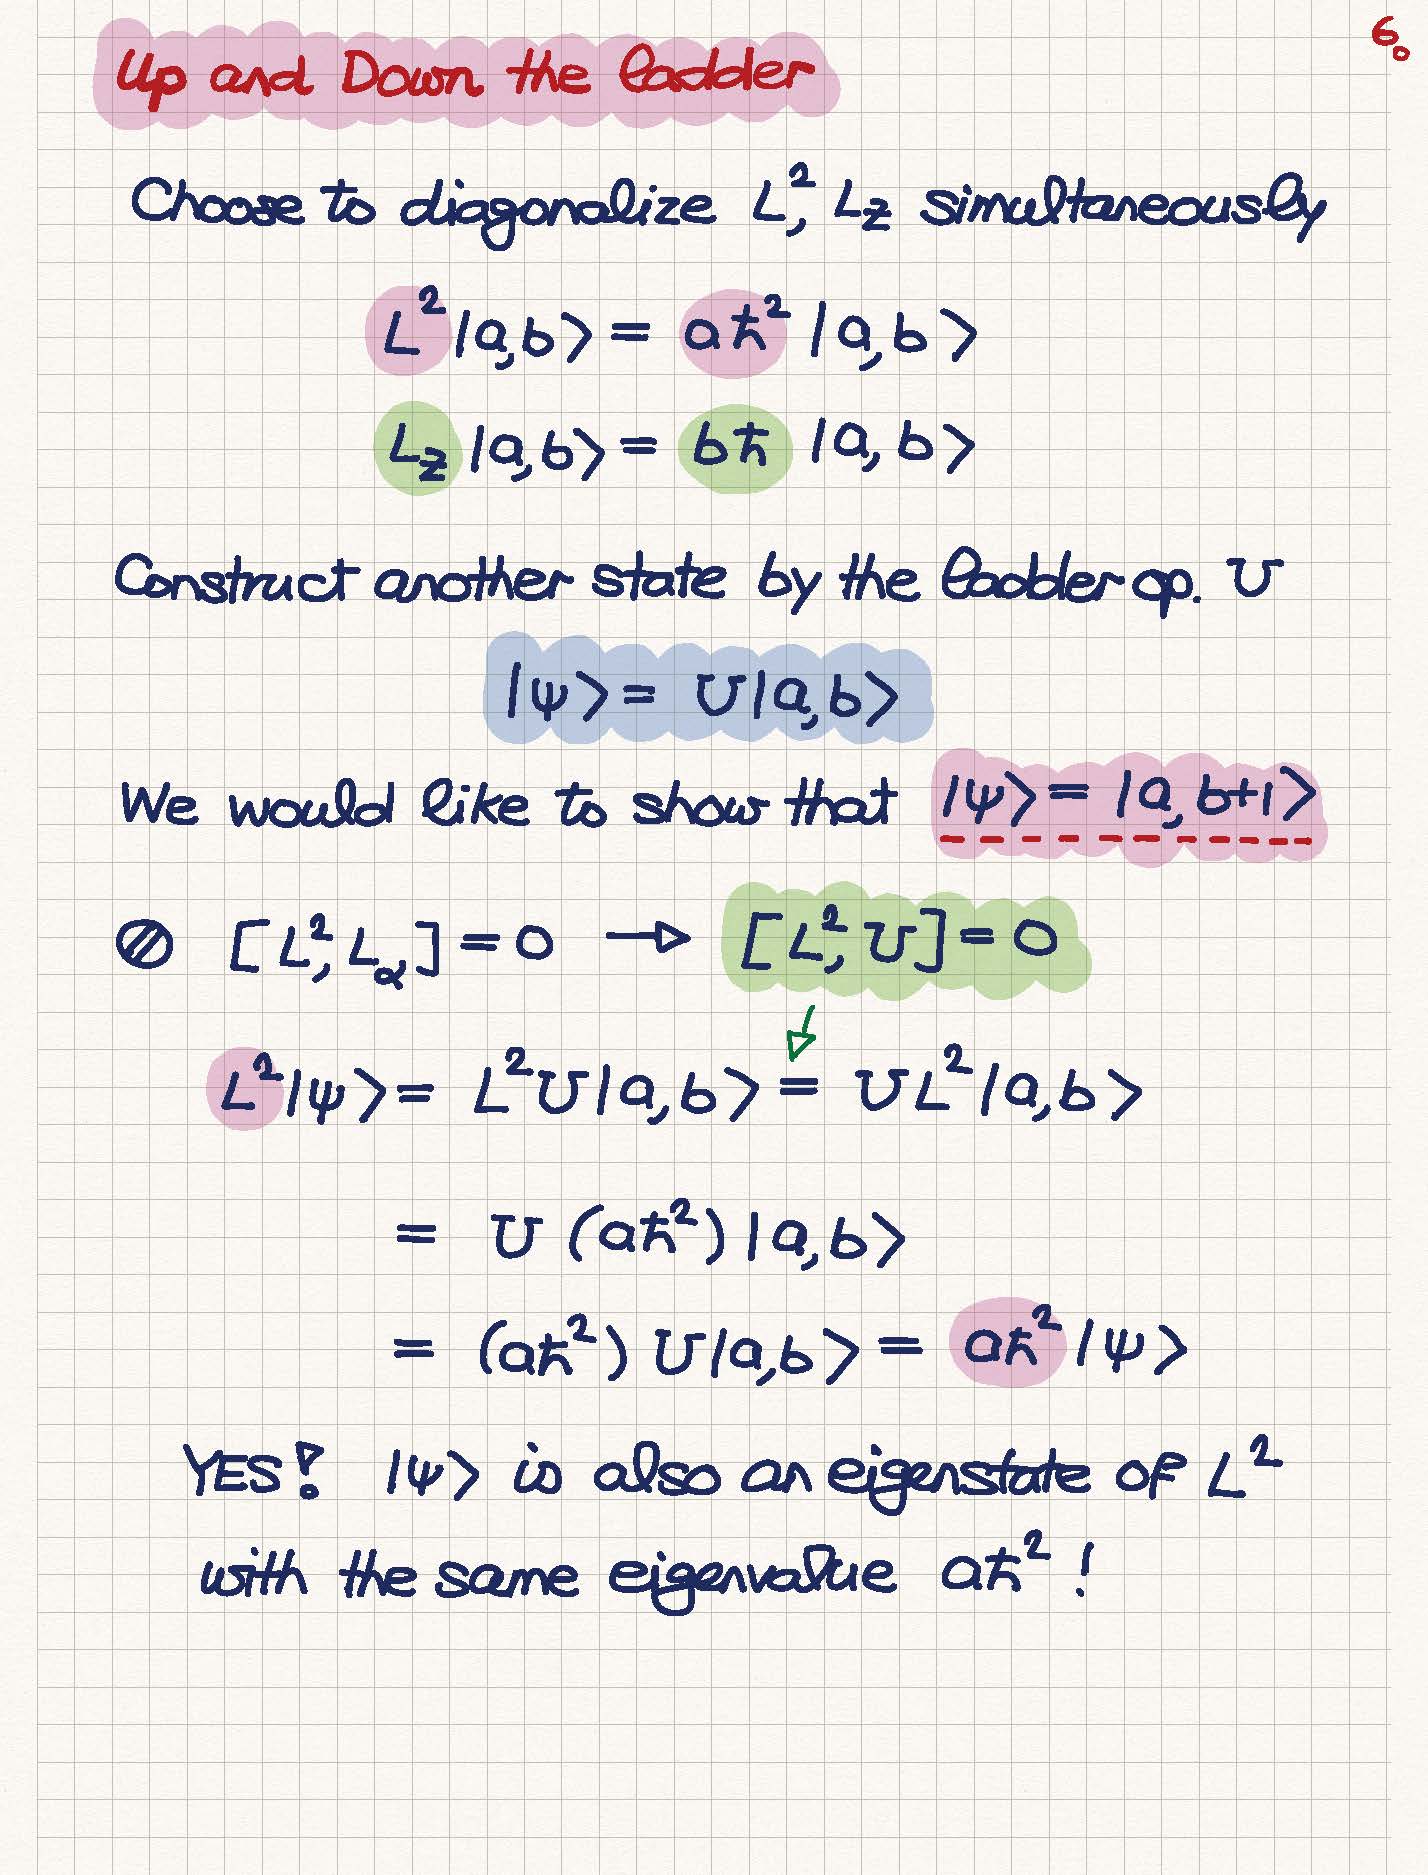 6.
Up and Down the ladder
Choose to diagonalize L², Lz simultaneously
L²|a,b⟩ = aℏ² |a,b⟩
Lz|a,b⟩ = bℏ |a,b⟩
Construct another state by the ladder op. U
|ψ⟩ = U|a,b⟩
We would like to show that |ψ⟩ = |a,b+1⟩
[L², Lα] = 0 → [L², U] = 0
L²|ψ⟩ = L²U|a,b⟩ = UL²|a,b⟩
= U (aℏ²) |a,b⟩
= (aℏ²) U|a,b⟩ = aℏ² |ψ⟩
YES! |ψ⟩ is also an eigenstate of L²
with the same eigenvalue aℏ² !